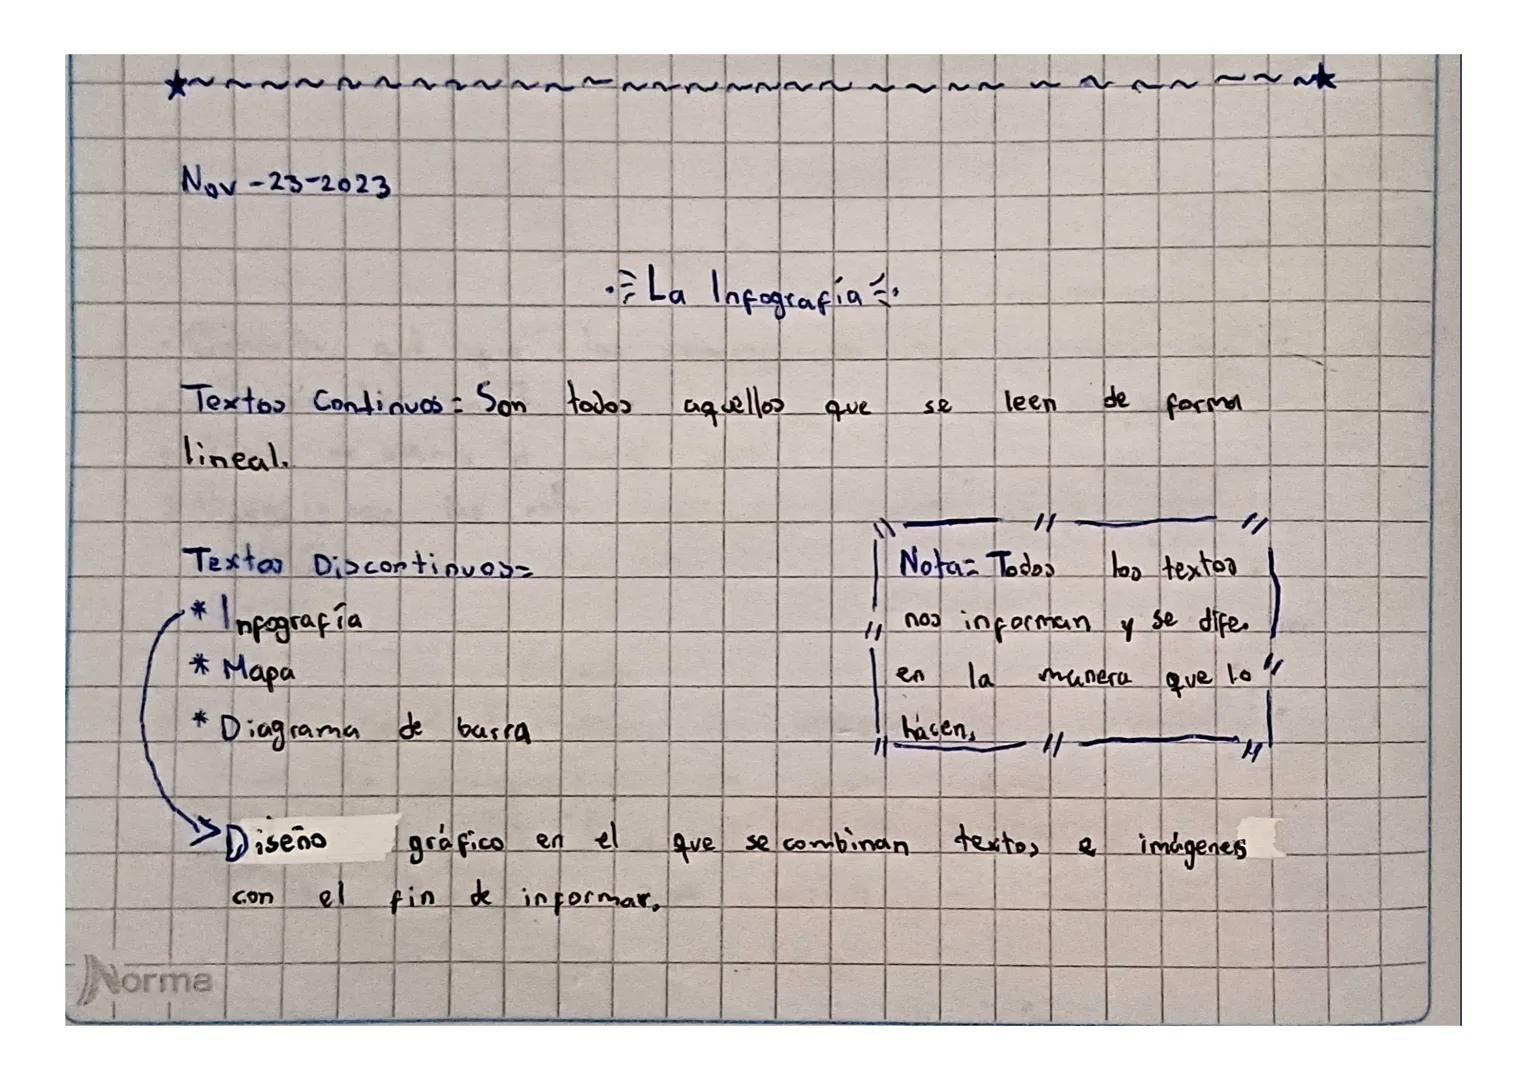 Nov-23-2023
La Infografía
Textos Continuos = Son todos aquellos que se leen de forma
lineal.
Textos Discontinuos=
* Infografía
* Mapa
* Diagrama de barra
Nota= Todos los textos
nos informan y se dife.
en la manera que lo
hácen.
Diseño gráfico en el que se combinan textos e imágenes
con el fin de informar.
Norma